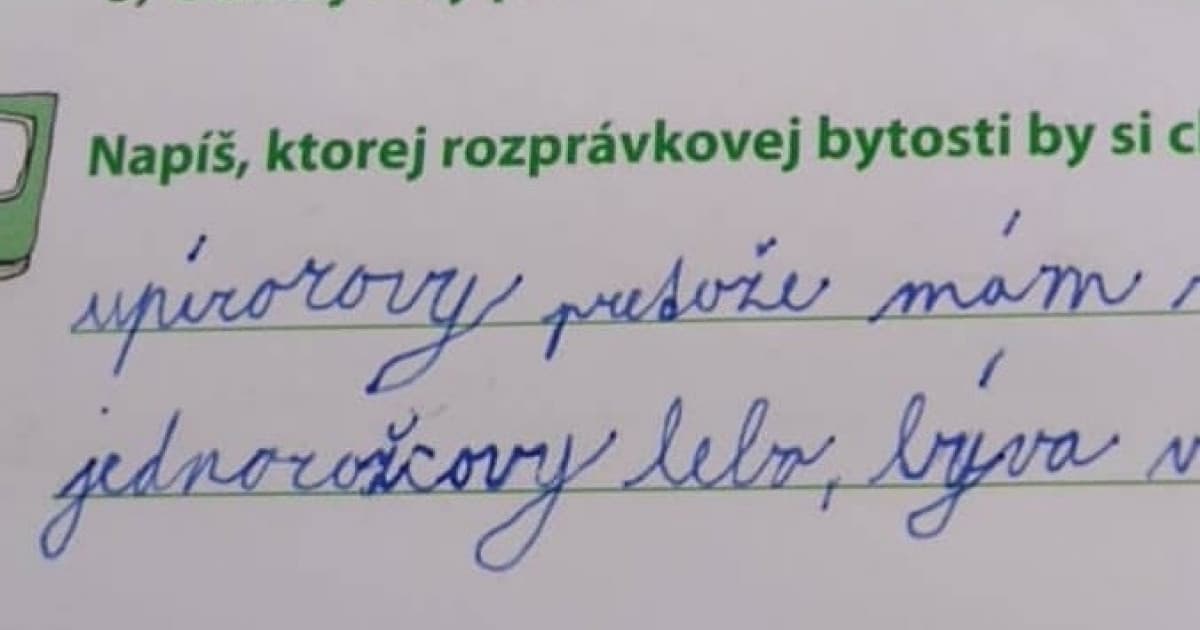 Napíš, ktorej rozprávkovej bytosti by si
upírorovy pretože mám
jednorožcovy lebo, býva v